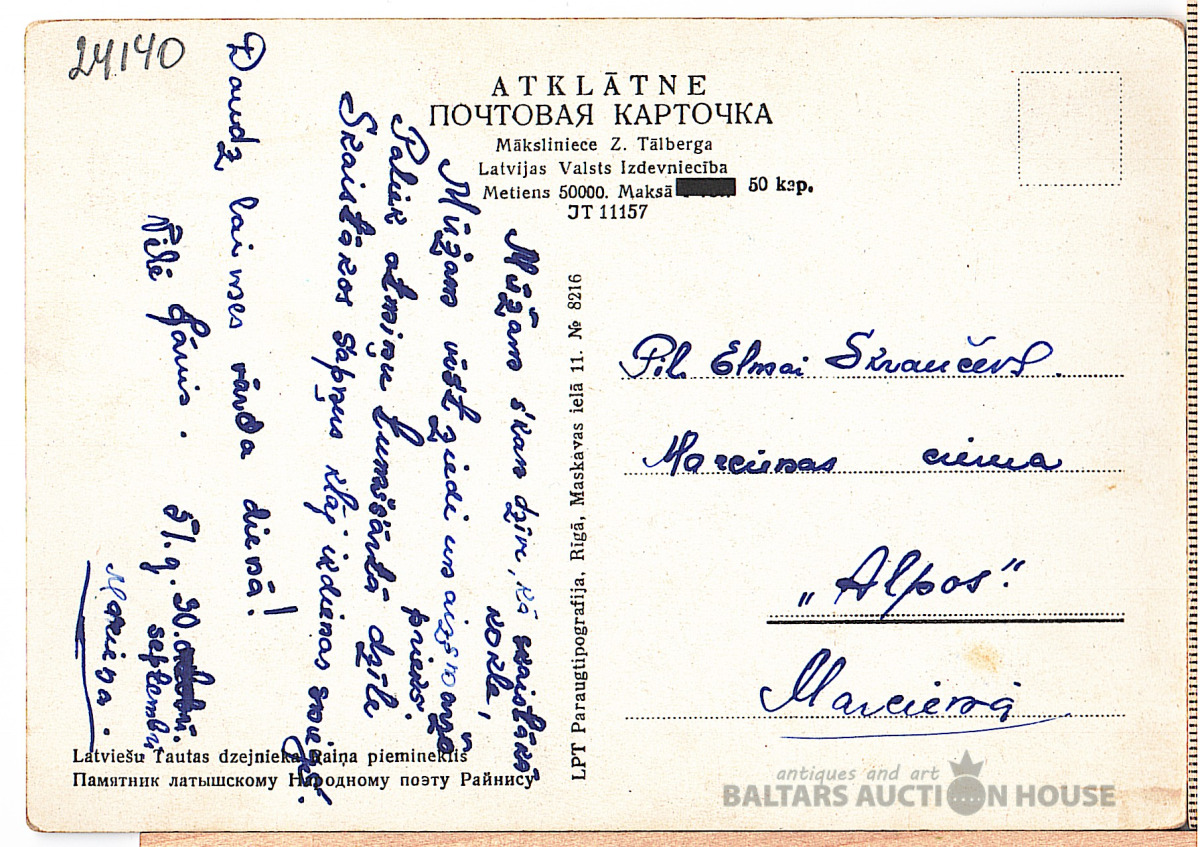 24140
ATKLĀTNE
ПОЧТОВАЯ КАРТОЧКА
Māksliniece Z. Tālberga
Latvijas Valsts Izdevniecība
Metiens 50000. Maksā 50 kap.
JT 11157
Mūžam skan dzīve, kā skaistākā
kokle,
Mūžam vīst ziedi un aizsnauž
prieks.
Paliek atmiņu tumšsārtā dzīle
Skaistākos sapņus klāj ikdienas sniegs.
Daudz laimes vārda dienā!
Vēlē Jānis.
51.g. 30.
septembrī
Mārciena.
LPT Paraugtipografija, Rīgā, Maskavas ielā 11. № 8216
Pil. Elmai
Marcienas ciema
„Alpos"
Marcienā
Latviešu Tautas dzejnieka Raiņa piemineklis
Памятник латышскому Народному поэту Райнису
antiques and art
BALTARS AUCTION HOUSE